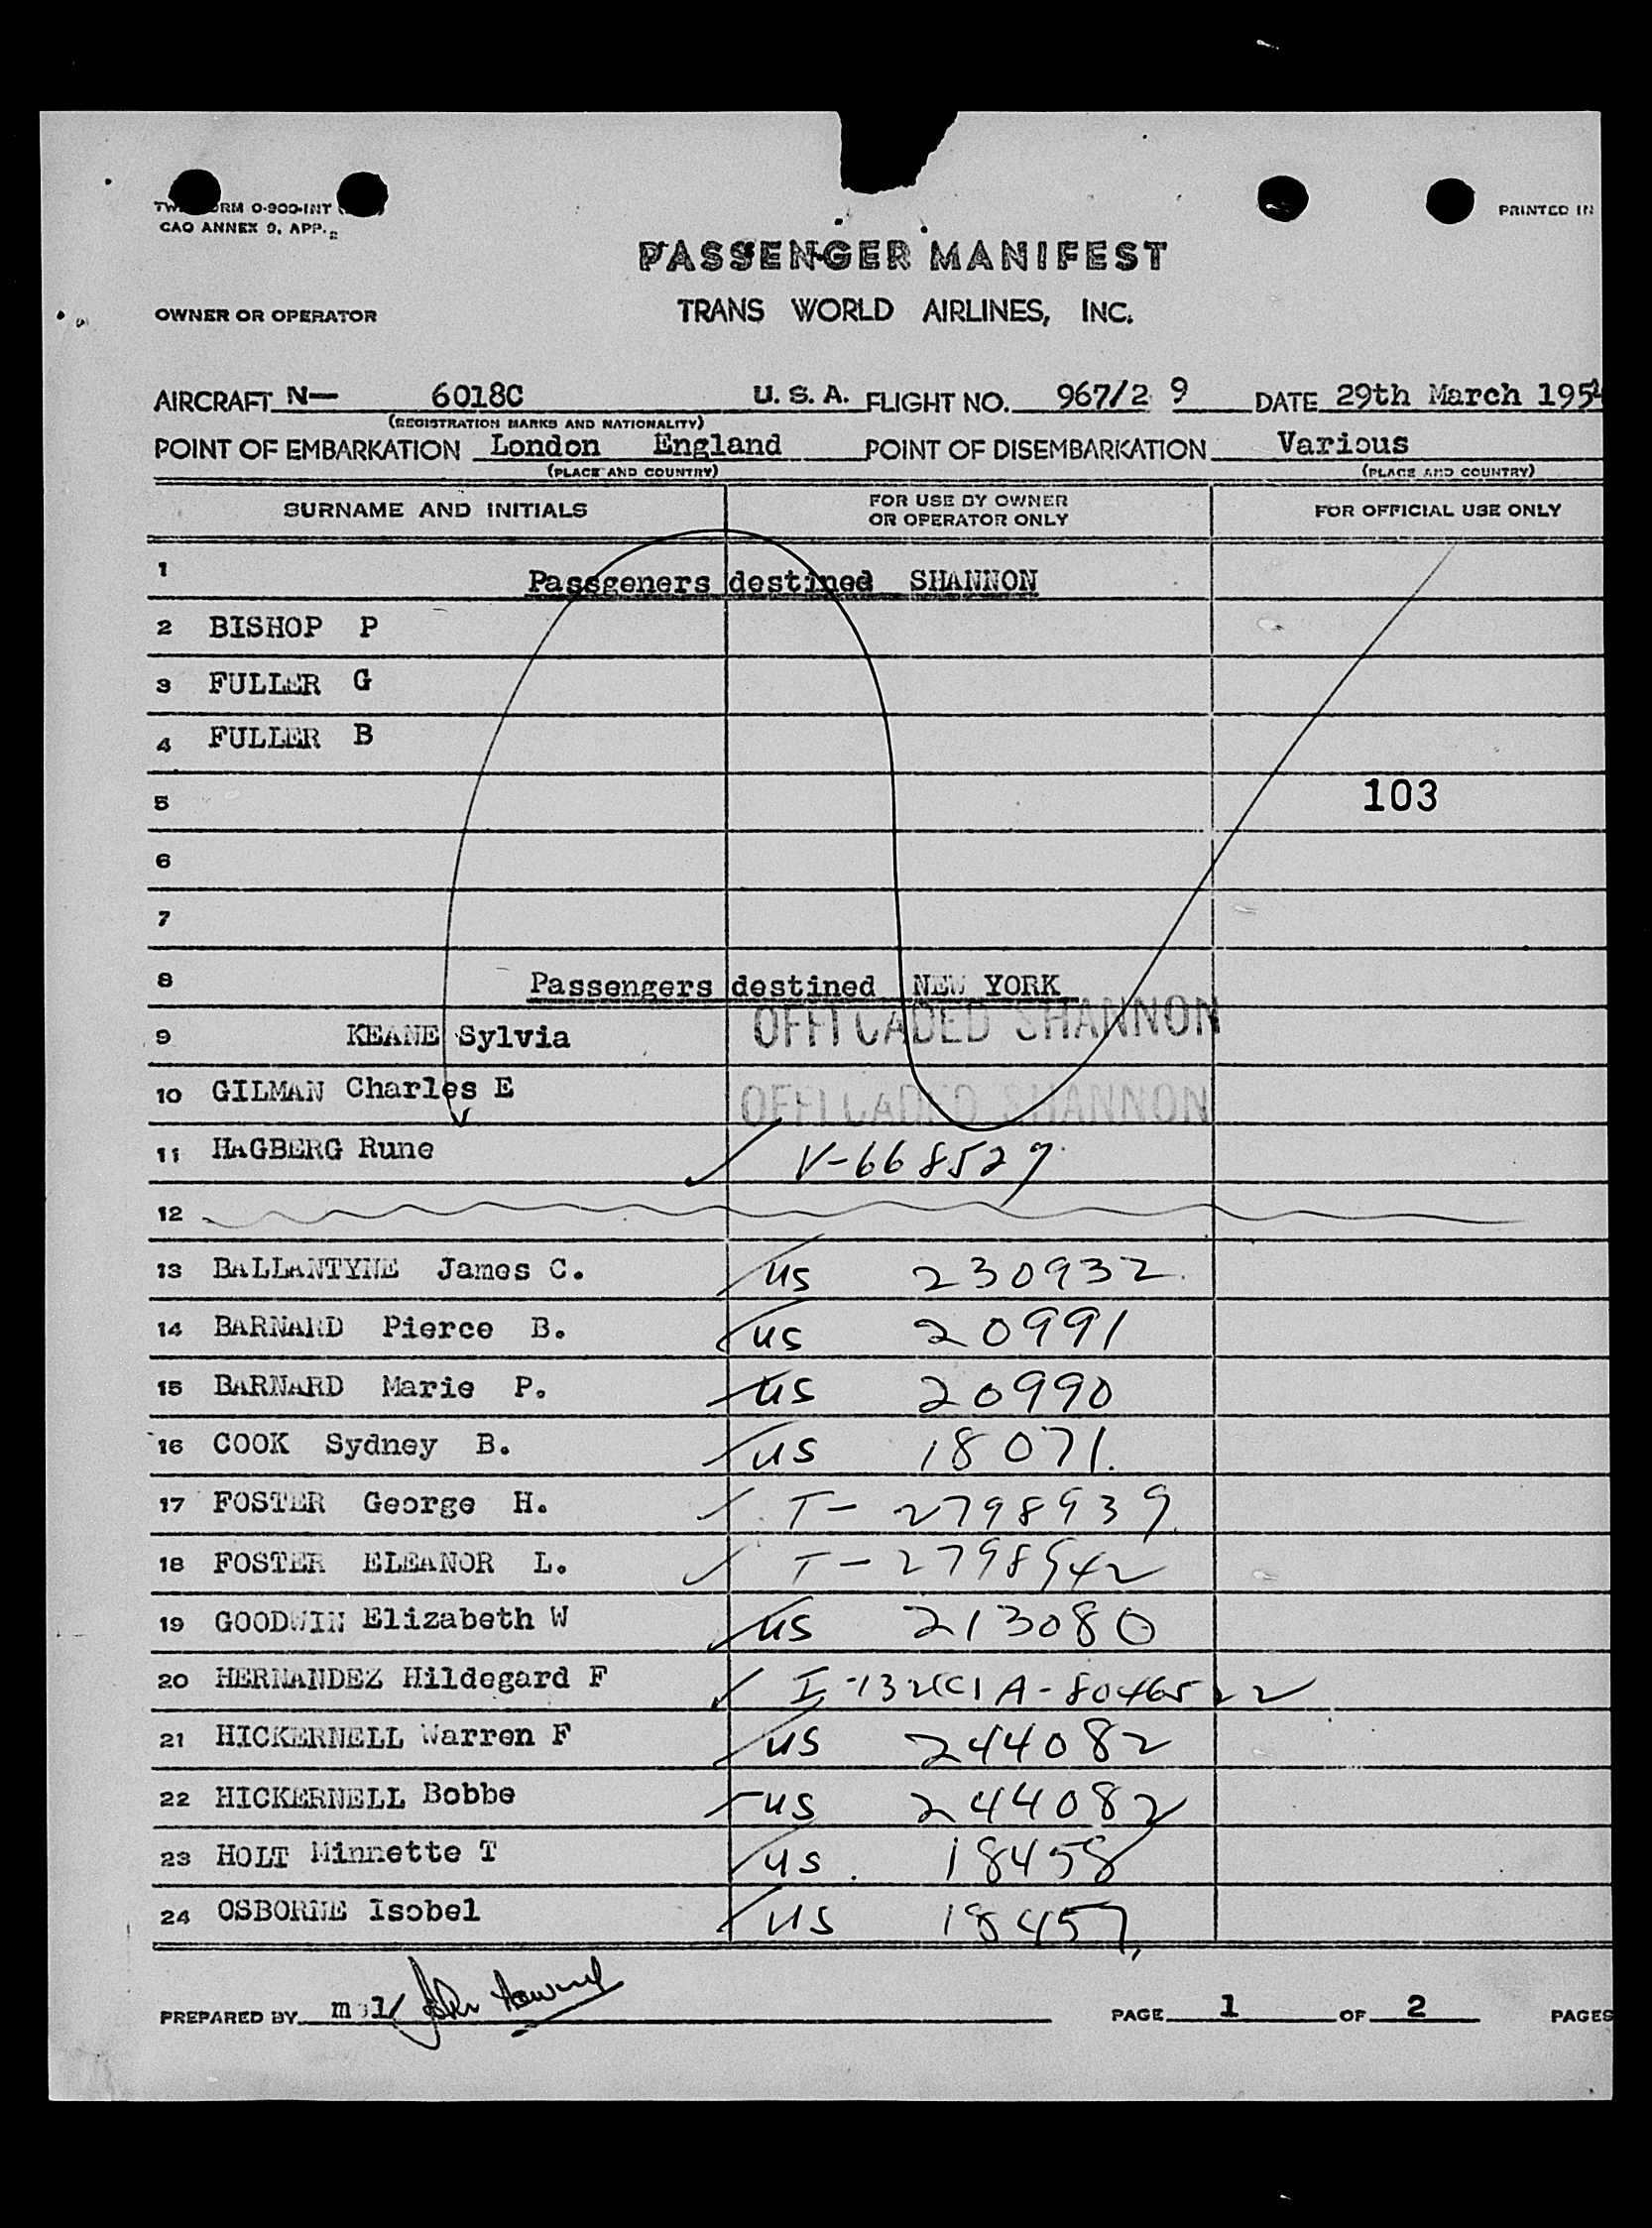 CAO ANNEX 9, APP. 2
PRINTED IN
PASSENGER MANIFEST
OWNER OR OPERATOR
TRANS WORLD AIRLINES, INC.
AIRCRAFT N— 6018C U. S. A. FLIGHT NO. 967/2 9 DATE 29th March 1954
(REGISTRATION MARKS AND NATIONALITY)
POINT OF EMBARKATION London England POINT OF DISEMBARKATION Various
(PLACE AND COUNTRY) (PLACE AND COUNTRY)
SURNAME AND INITIALS FOR USE BY OWNER OR OPERATOR ONLY FOR OFFICIAL USE ONLY
1 Passgeners destined SHANNON
2 BISHOP P
3 FULLER G
4 FULLER B
5 103
6
7
8 Passengers destined NEW YORK
9 KEANE Sylvia OFFLOADED SHANNON
10 GILMAN Charles E OFFLOADED SHANNON
11 HAGBERG Rune V-668527
12
13 BALLANTYNE James C. US 230932
14 BARNARD Pierce B. US 20991
15 BARNARD Marie P. US 20990
16 COOK Sydney B. US 18071.
17 FOSTER George H. T- 2798939
18 FOSTER ELEANOR L. T-2798942
19 GOODWIN Elizabeth W US 213080
20 HERNANDEZ Hildegard F
21 HICKERNELL Warren F US 244082
22 HICKERNELL Bobbe US 244082
23 HOLT Minnette T US. 18458
24 OSBORNE Isobel US 18457
PREPARED BY PAGE 1 OF 2 PAGES